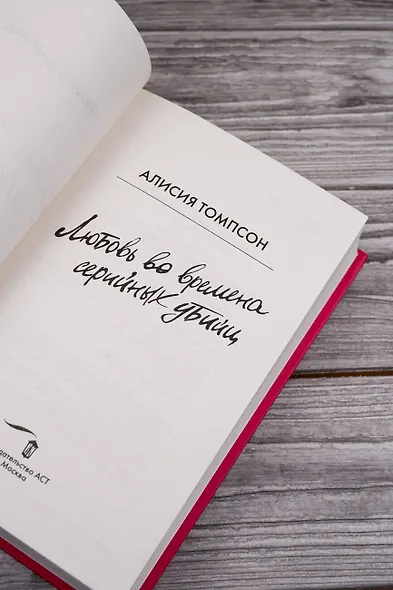 АЛИСИЯ ТОМПСОН
Любовь во времена
серийных убийц
дательство АСТ
Москва